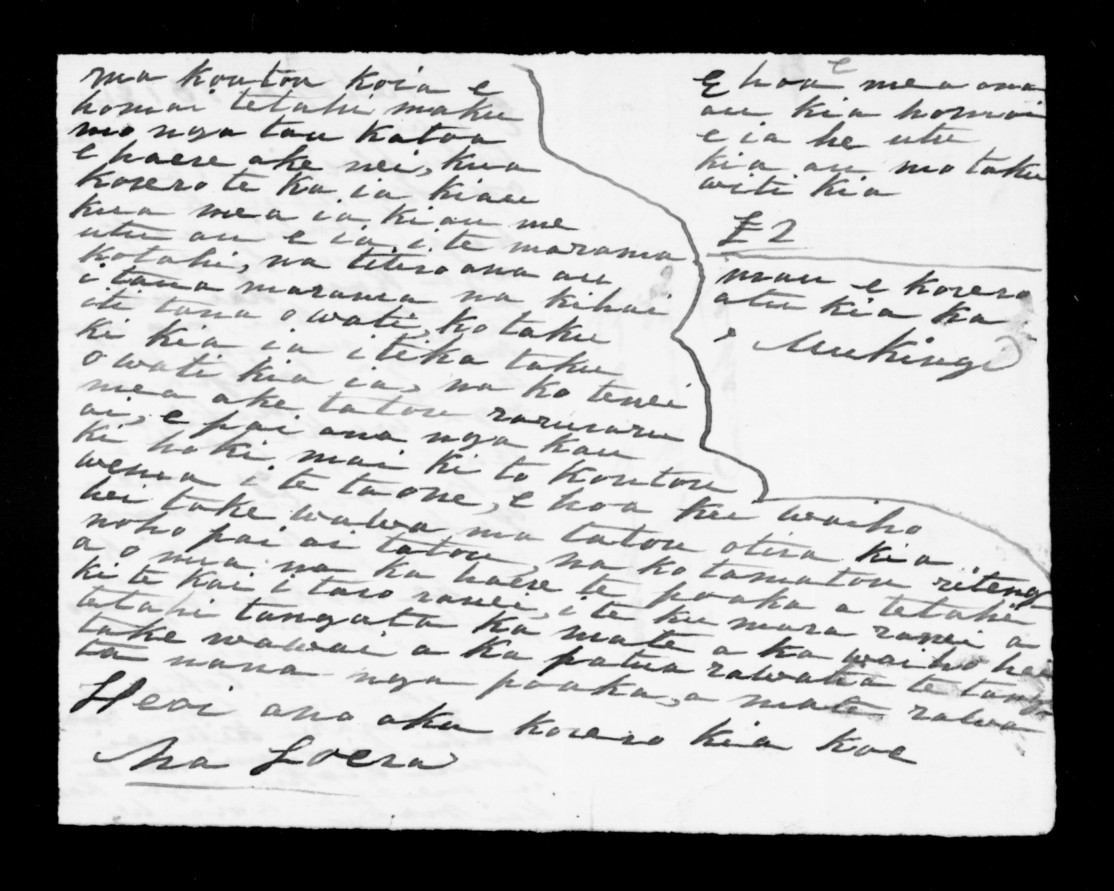 ma koutou koia e
homai tetahi maku
mo nga tau katoa
e haere ake nei, kua
korero te Ka ia kiau
kua mea ia kiau me
utu au e ia, i te marama
kotahi, na titiro ana au
i taua marama na kihai
oti tana owati, ko taku
ki kia ia itika taku
owati kia ia, na ko tenei
mea ake tatou raruraru
ai, e pai ana nga kau
ki hoki mai ki to koutou
wenua i te taone, e hoa kei waiho
hei take wawa ma tatou otira kia
noho pai ai tatou, na ko tamatou riteng
a o mua na ka haere te poaka a tetahi
ki te kai i taro ranei, i te ku mara ranei a
tetahi tangata ka mate a ka waiho hei
take wawai a ka patua rawatia te tanga
ta nana nga poaka, a mate rawa
Heoi ano aku korero kia koe
Na
E hoa e mea ana
au kia homai
e ia he utu
kia au mo taku
witi kia
£2
mau e korero
atu kia ka